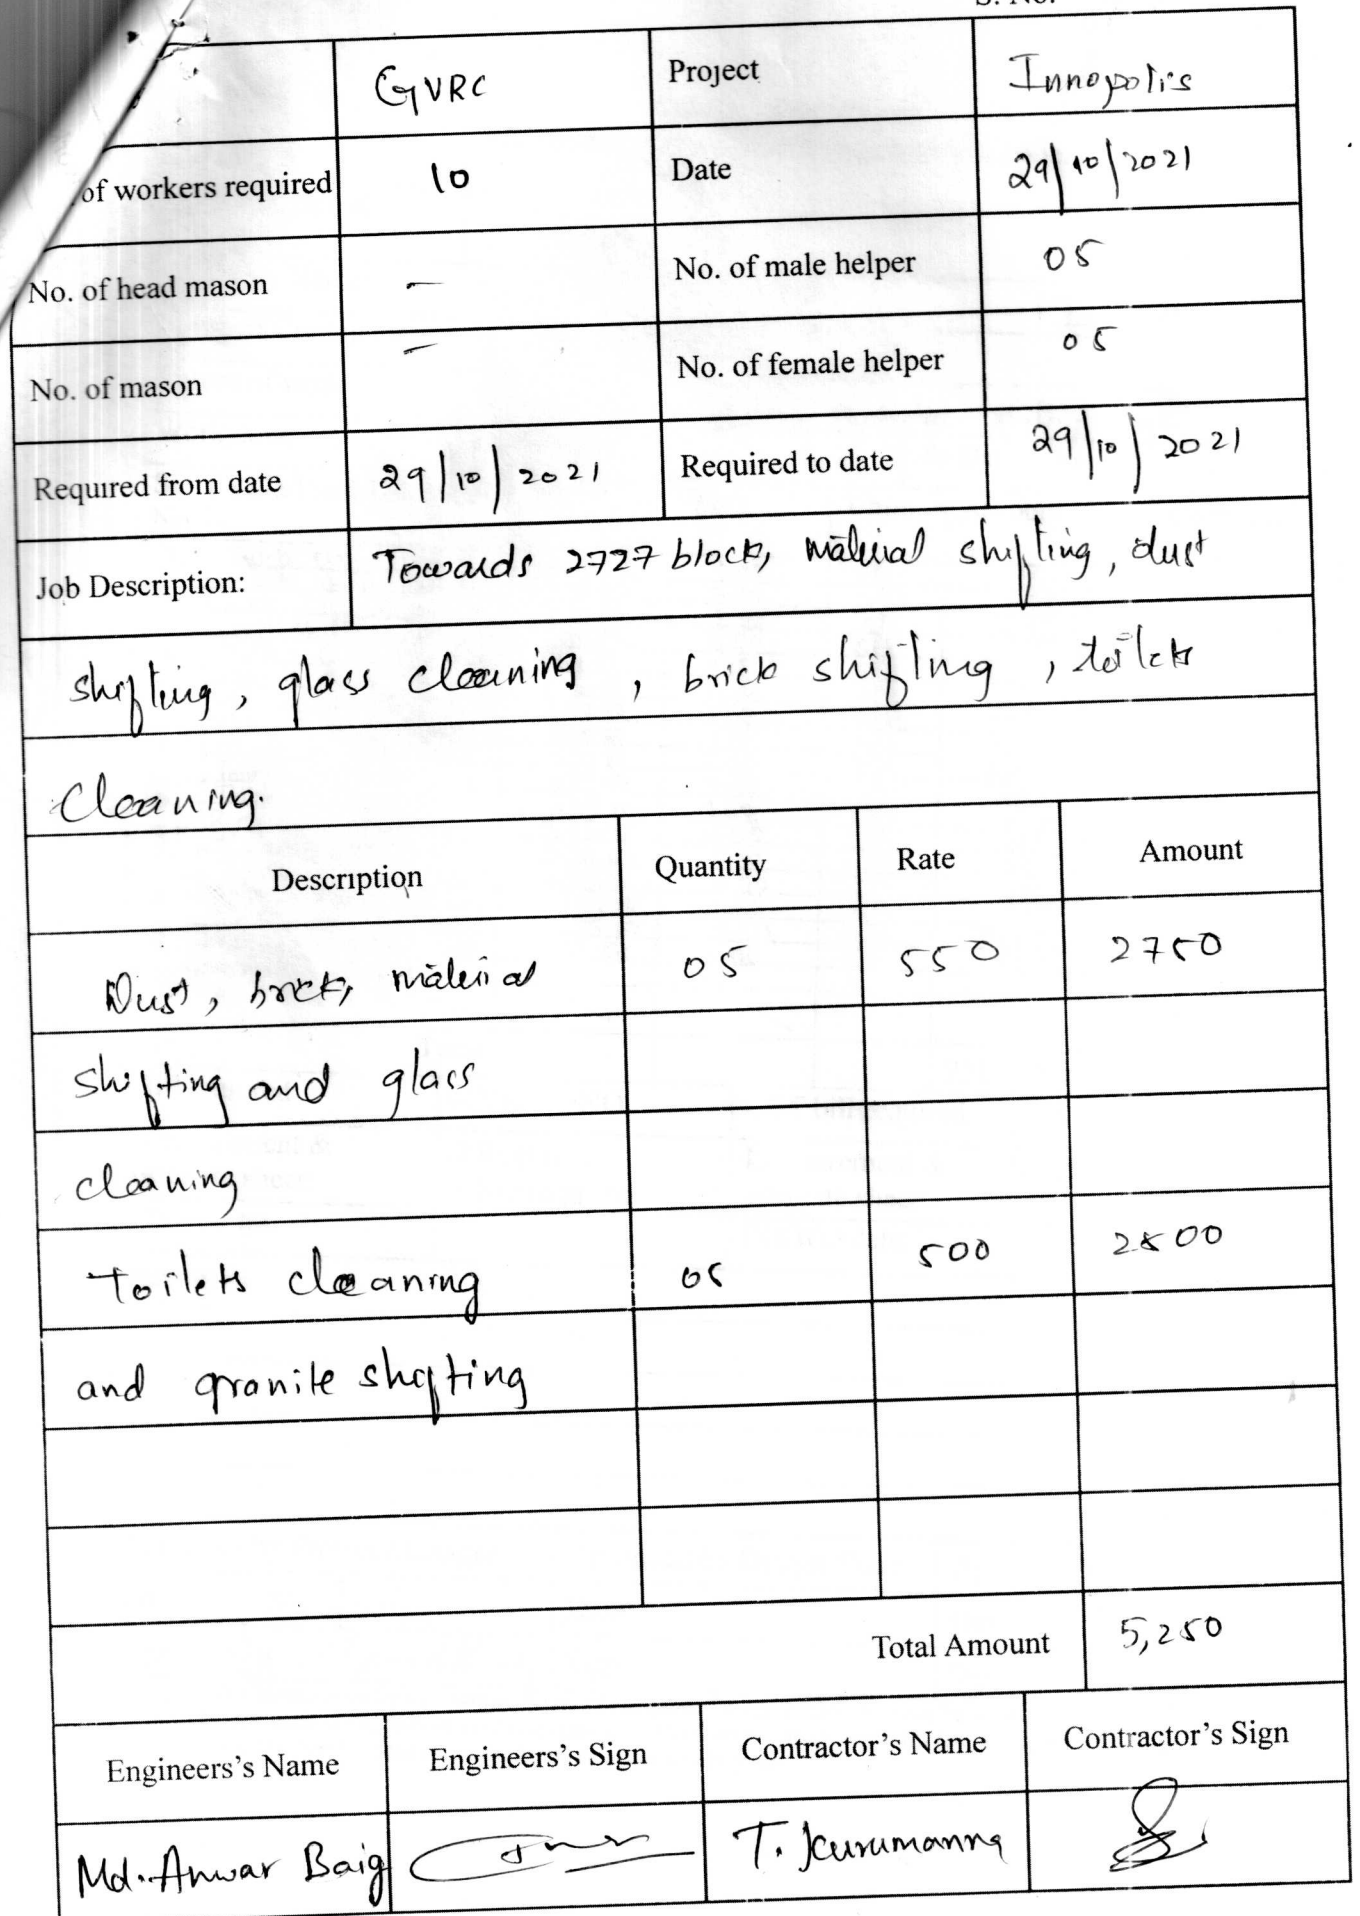 GVRC Project Innopolis
of workers required 10 Date 29/10/2021
No. of head mason - No. of male helper 05
No. of mason - No. of female helper 05
Required from date 29/10/2021 Required to date 29/10/2021
Job Description: Towards 2727 block, material shifting, dust
shifting, glass cleaning, brick shifting, toilets
cleaning.
Description Quantity Rate Amount
Dust, brick, material 05 550 2750
shifting and glass
cleaning
Toilets cleaning 05 500 2500
and granite shifting
Total Amount 5,250
Engineers's Name Engineers's Sign Contractor's Name Contractor's Sign
Md. Anwar Baig T. Kurumanna